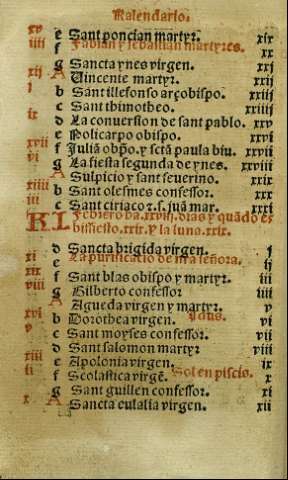 Kalendario.
xv e Sant poncian martyr. xix
iiii f Fabian y sebastian martyres. xx
g Sancta ynes virgen. xxj
xij A Uincente martyr. xxij
j b Sant illefonso arçobispo. xxiij
c Sant thimotheo. xxiiij
ix d La conuersion de sant pablo. xxv
e Policarpo obispo. xxvi
xvii f Juliã obpo. y sctã paula biu. xxvii
vi g La fiesta segunda de ynes. xxviii
A Sulpicio y sant seuerino. xxix
xiiii b Sant olesmes confessor. xxx
iii c Sant ciriaco z. s. juã mar. xxxi
KL Febrero ha .xxviij. dias y quãdo es
bissiesto .xxix. y la luna .xxix.
d Sancta brigida virgen. j
xi e La purificatio de nra señora. ij
xix f Sant blas obispo y martyr. iii
viii g Gilberto confessor iiii
A Agueda virgen y martyr. v
xvi b Dorothea virgen. ydus. vi
v c Sant moyses confessor. vii
d Sant salomon martyr viii
xiii e Apolonia virgen. ix
ii f Scolastica virgẽ. Sol en piscis. x
g Sant guillen confessor. xi
x A Sancta eulalia virgen. xii